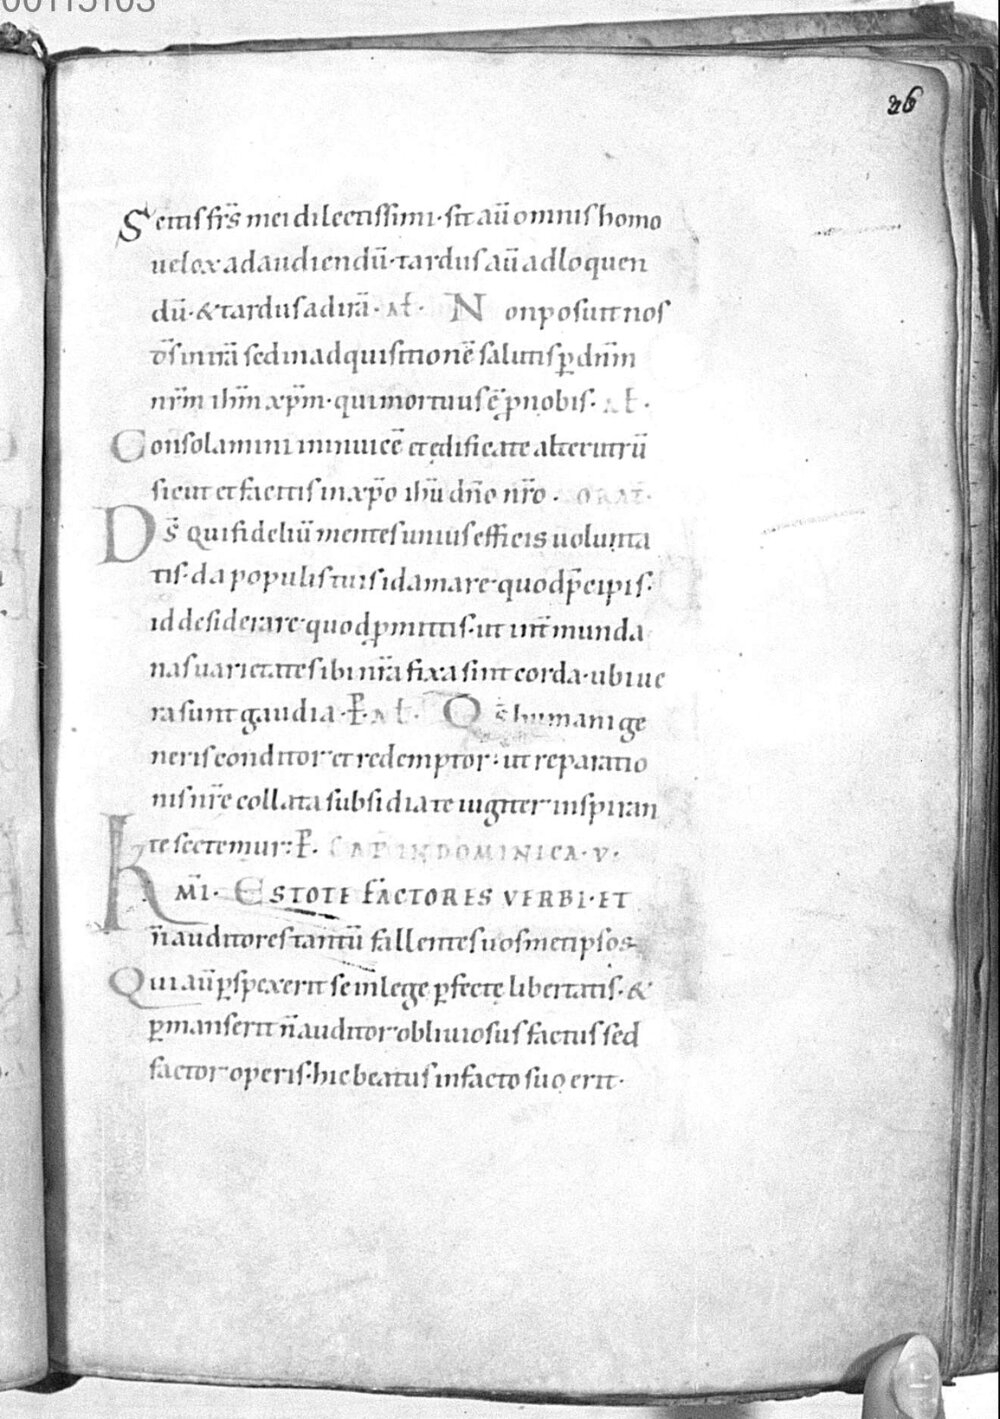 00115103
26
Scitis fr̄s mei dilectissimi · sit aū omnis homo
uelox ad audiendū · tardus aū ad loquen
dū · & tardus ad irā · AŁ · Non posuit nos
d̄s in irā sed in adquisitionē salutis ꝑ dn̄m
nr̄m ih̄m xp̄m · qui mortuus ē ꝓ nobis · AŁ ·
Consolamini inuicē et ędificate alterutrū
sicut et facitis in xp̄o ih̄u dn̄o nr̄o · ORAT̄ ·
D̄s qui fideliū mentes unius efficis uolunta
tis · da populis tuis id amare · quod p̄cipis ·
id desiderare · quod ꝓmittis · ut int̄ munda
nas uarietates ibi nr̄a fixa sint corda · ubi ue
ra sunt gaudia · P̱ · AŁ · Q̄s humani ge
neris conditor et redemptor : ut reparatio
nis nr̄e collata subsidia te iugiter inspiran
te sectemur : P̱ · CAP̄ IN DOMINICA · V ·
KMĪ · ESTOTE FACTORES VERBI · ET
n̄ auditores tantū fallentes uosmetipsos
Qui aū ꝑspexerit se in lege ꝑfectę libertatis · &
ꝑmanserit n̄ auditor obliuiosus factus sed
factor operis · hic beatus in facto suo erit ·